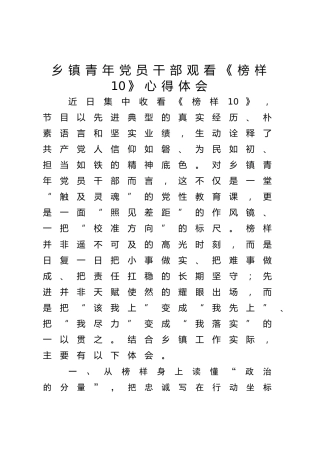 乡镇青年党员干部观看《榜样
10》心得体会
近日集中收看《榜样10》，
节目以先进典型的真实经历、朴
素语言和坚实业绩，生动诠释了
共产党人信仰如磐、为民如初、
担当如铁的精神底色。对乡镇青
年党员干部而言，这不仅是一堂
“触及灵魂”的党性教育课，更
是一面“照见差距”的作风镜、
一把“校准方向”的标尺。榜样
并非遥不可及的高光时刻，而是
日复一日把小事做实、把难事做
成、把责任扛稳的长期坚守；先
进并非天赋使然的耀眼出场，而
是把“该我上”变成“我先上”、
把“我尽力”变成“我落实”的
一以贯之。结合乡镇工作实际，
主要有以下体会。
一、从榜样身上读懂“政治
的分量”，把忠诚写在行动坐标